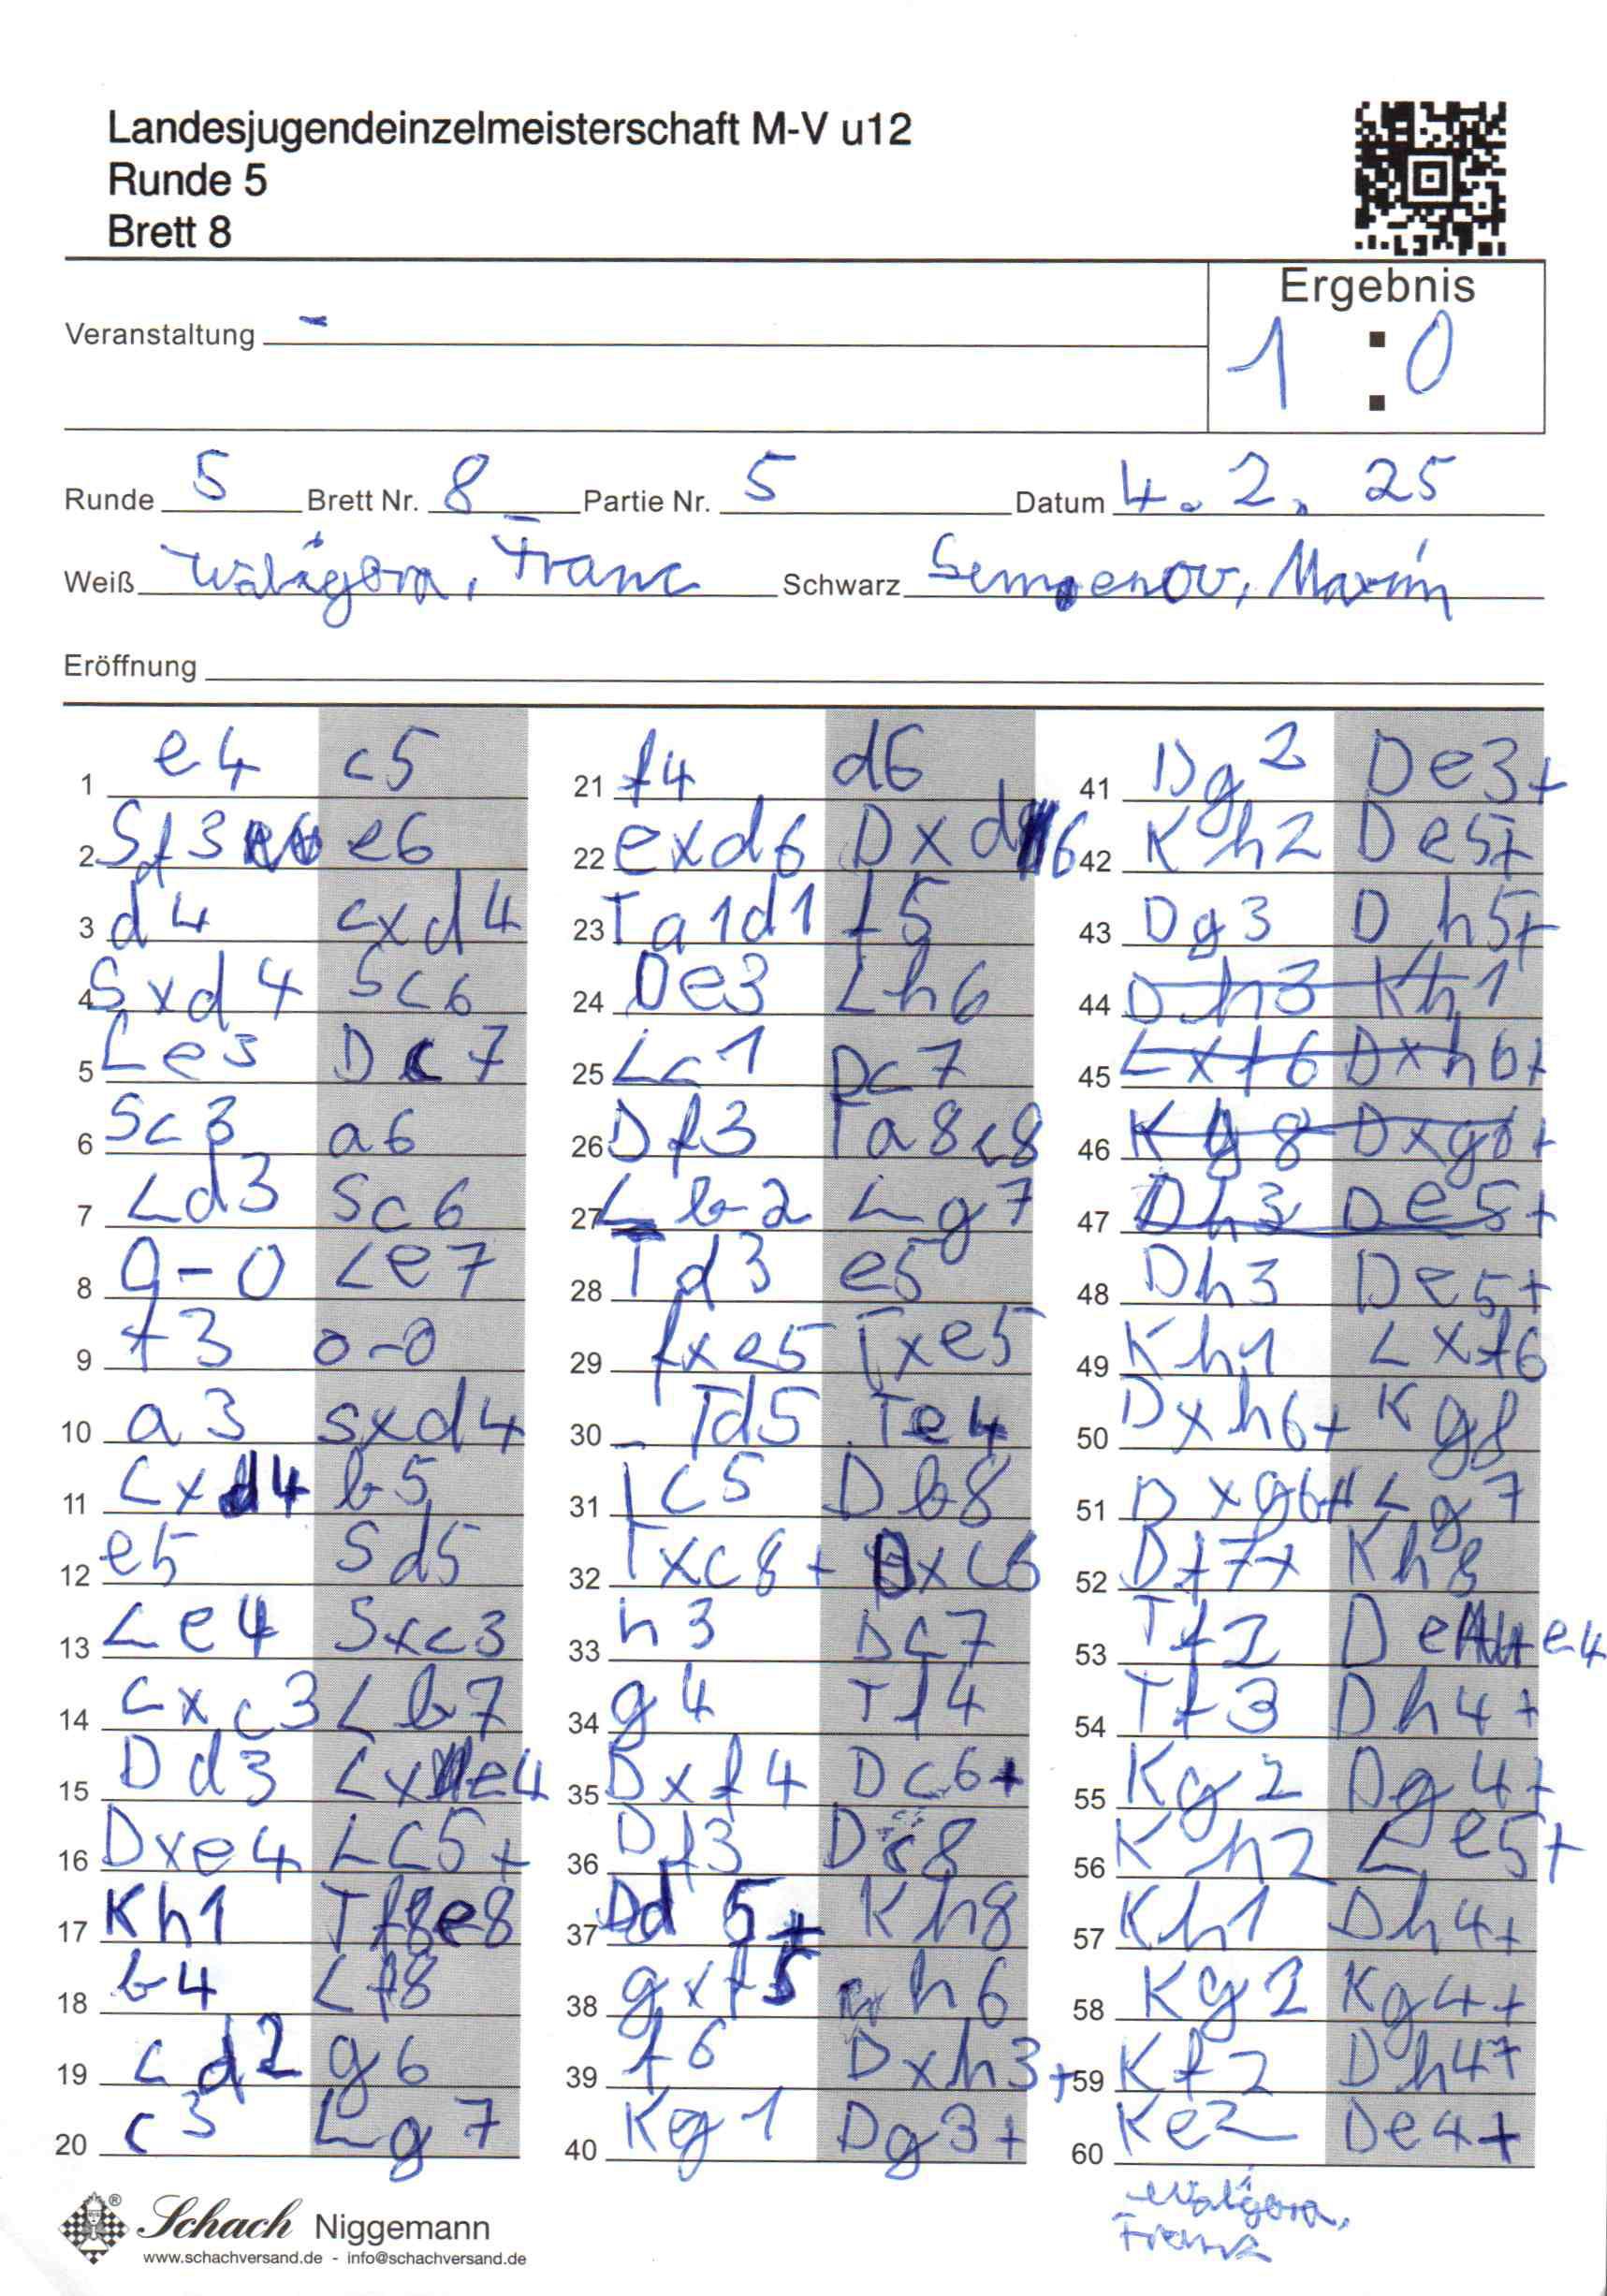 Landesjugendeinzelmeisterschaft M-V u12
Runde 5
Brett 8
Ergebnis
1 : 0
Veranstaltung -
Runde 5 Brett Nr. 8 Partie Nr. 5 Datum 4. 2. 25
Weiß Franc Schwarz Maxim
Eröffnung
1 e4 c5 21 f4 d6 41 Dg2 De3+
2 Sf3 e6 22 exd6 Dxd6 42 Kh2 De5+
3 d4 cxd4 23 Ta1d1 f5 43 Dg3 Dh5+
4 Sxd4 Sc6 24 De3 Lh6 44 Dh3 Kh1
5 Le3 Dc7 25 Lc1 Dc7 45 Lxf6 Dxh6+
6 Sc3 a6 26 Df3 Ta8c8 46 Kg8 Dxg6+
7 Ld3 Sc6 27 Lb2 Lg7 47 Dh3 De5+
8 0-0 Le7 28 Td3 e5 48 Dh3 De5+
9 f3 0-0 29 fxe5 Txe5 49 Kh1 Lxf6
10 a3 Sxd4 30 Td5 Te4 50 Dxh6+ Kg8
11 Lxd4 b5 31 Tc5 Db8 51 Dxg6+ Lg7
12 e5 Sd5 32 Txc8+ Dxc8 52 Df7+ Kh8
13 Le4 Sxc3 33 h3 Dc7 53 Tf2 De4
14 Lxc3 Lb7 34 g4 Tf4 54 Tf3 Dh4+
15 Dd3 Lxe4 35 Dxf4 Dc6+ 55 Kg2 Dg4+
16 Dxe4 Lc5+ 36 Df3 Dc8 56 Kh2 Le5+
17 Kh1 Tf8e8 37 Dd5+ Kh8 57 Kh1 Dh4+
18 b4 Lf8 38 gxf5 h6 58 Kg2 Kg4+
19 Ld2 g6 39 f6 Dxh3+ 59 Kf2 Dh4+
20 c3 Lg7 40 Kg1 Dg3+ 60 Ke2 De4+
Schach Niggemann
www.schachversand.de - info@schachversand.de